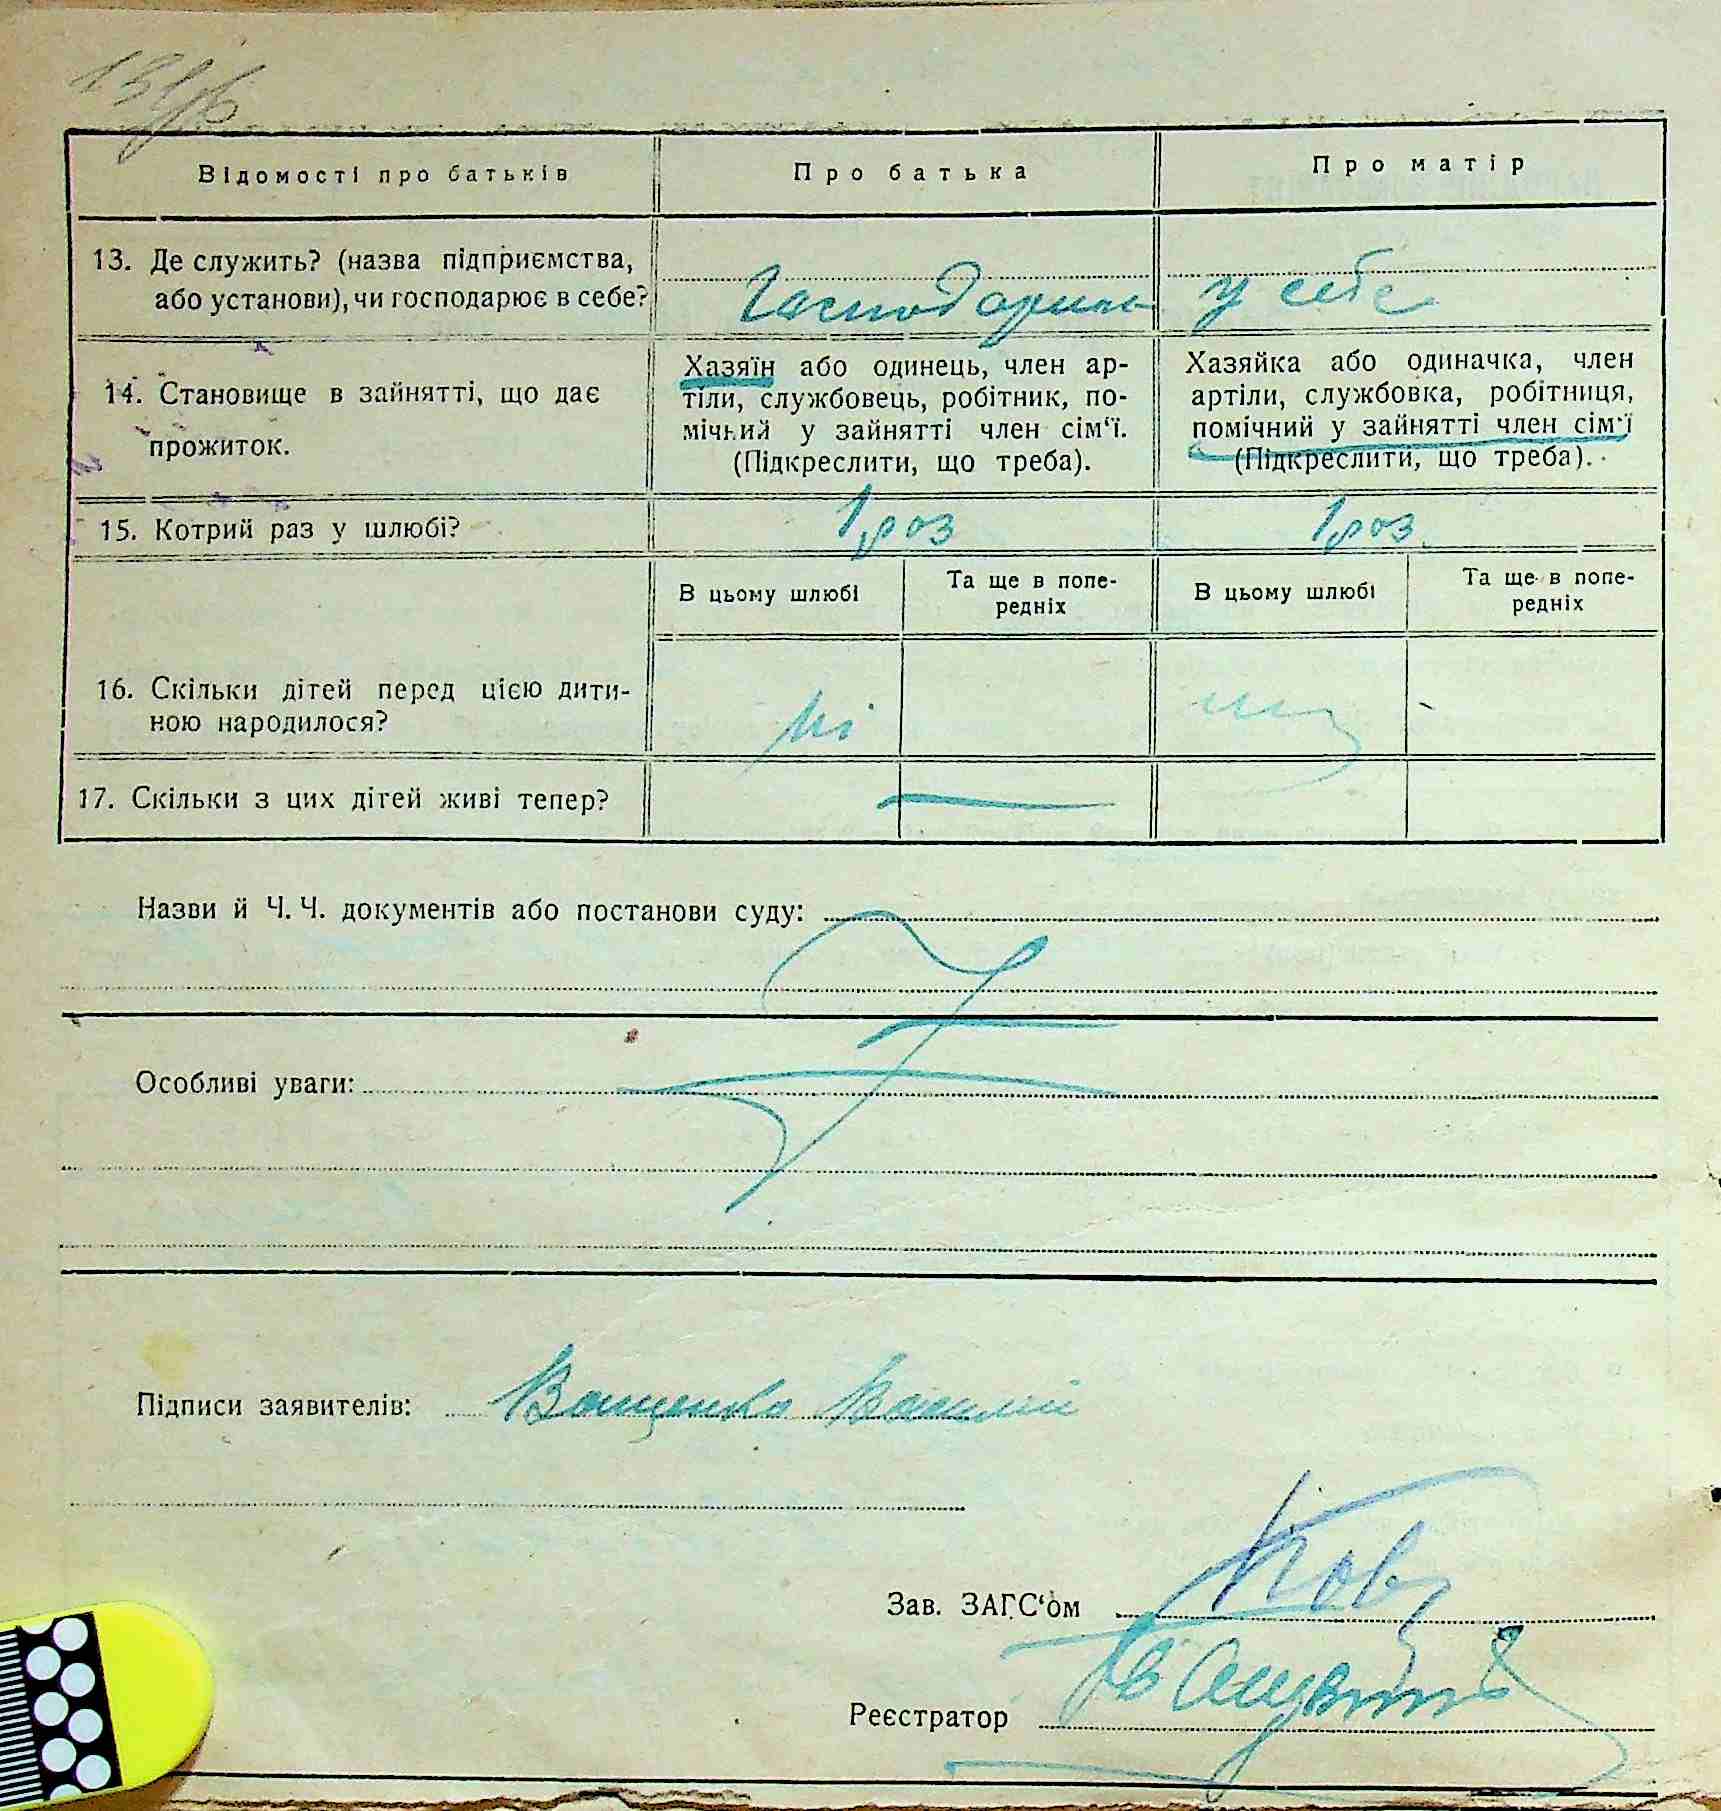 Відомості про батьків
Про батька
Про матір
13. Де служить? (назва підприємства,
або установи), чи господарює в себе?
Господарить у себе
14. Становище в зайнятті, що дає
прожиток.
Хазяїн або одинець, член ар-
тіли, службовець, робітник, по-
мічний у зайнятті член сім‘ї.
(Підкреслити, що треба).
Хазяйка або одиначка, член
артіли, службовка, робітниця,
помічний у зайнятті член сім‘ї
(Підкреслити, що треба).
15. Котрий раз у шлюбі?
1 раз
1 раз.
В цьому шлюбі
Та ще в попе-
редніх
В цьому шлюбі
Та ще в попе-
редніх
16. Скільки дітей перед цією дити-
ною народилося?
Ні
17. Скільки з цих дітей живі тепер?
Назви й Ч. Ч. документів або постанови суду:
Особливі уваги:
Підписи заявителів: Ващенко Василій
Зав. ЗАГС‘ом
Реєстратор